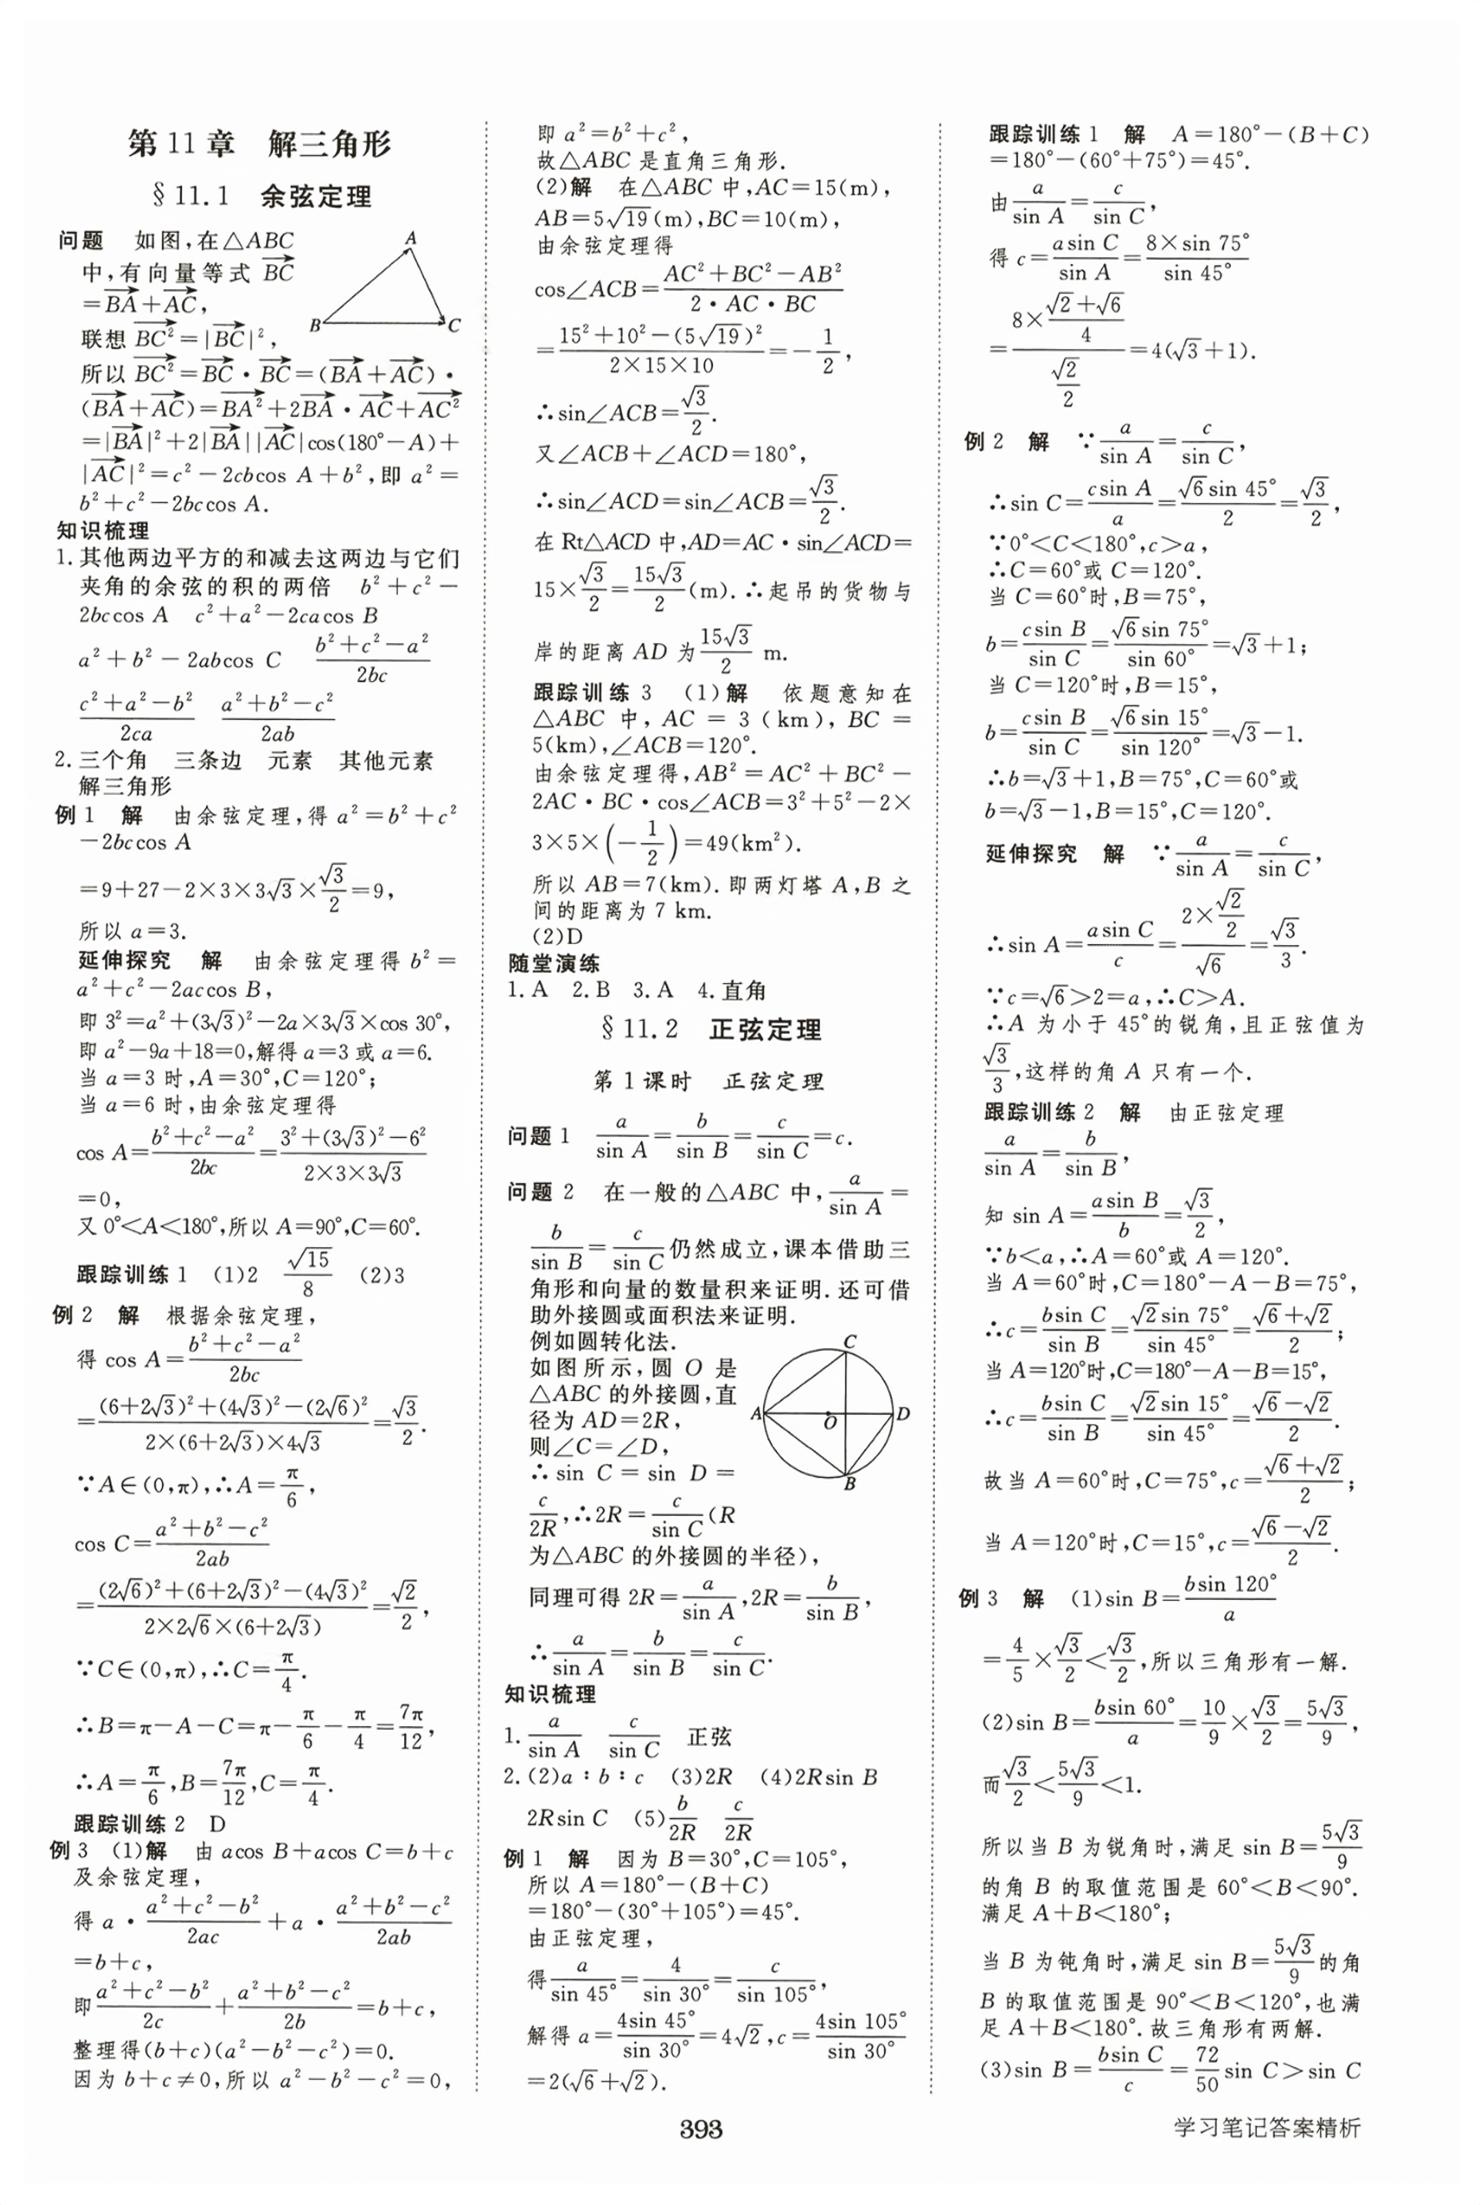 第11章 解三角形
§11.1 余弦定理
问题 如图,在△ABC
中,有向量等式 \overrightarrow{BC}
=\overrightarrow{BA}+\overrightarrow{AC},
联想 \overrightarrow{BC}²=|\overrightarrow{BC}|²,
所以 \overrightarrow{BC}²=\overrightarrow{BC}·\overrightarrow{BC}=(\overrightarrow{BA}+\overrightarrow{AC})·
(\overrightarrow{BA}+\overrightarrow{AC})=\overrightarrow{BA}²+2\overrightarrow{BA}·\overrightarrow{AC}+\overrightarrow{AC}²
=|\overrightarrow{BA}|²+2|\overrightarrow{BA}||\overrightarrow{AC}|cos(180°-A)+
|\overrightarrow{AC}|²=c²-2cbcos A+b²,即 a²=
b²+c²-2bccos A.
A
B
C
知识梳理
1.其他两边平方的和减去这两边与它们
夹角的余弦的积的两倍 b²+c²-
2bccos A c²+a²-2cacos B
a²+b²-2abcos C \frac{b²+c²-a²}{2bc}
\frac{c²+a²-b²}{2ca} \frac{a²+b²-c²}{2ab}
2.三个角 三条边 元素 其他元素
解三角形
例1 解 由余弦定理,得 a²=b²+c²
-2bccos A
=9+27-2×3×3√3×\frac{√3}{2}=9,
所以 a=3.
延伸探究 解 由余弦定理得 b²=
a²+c²-2accos B,
即 3²=a²+(3√3)²-2a×3√3×cos 30°,
即 a²-9a+18=0,解得 a=3 或 a=6.
当 a=3 时,A=30°,C=120°;
当 a=6 时,由余弦定理得
cos A=\frac{b²+c²-a²}{2bc}=\frac{3²+(3√3)²-6²}{2×3×3√3}
=0,
又 0°<A<180°,所以 A=90°,C=60°.
跟踪训练1 (1)2 \frac{√15}{8} (2)3
例2 解 根据余弦定理,
得 cos A=\frac{b²+c²-a²}{2bc}
=\frac{(6+2√3)²+(4√3)²-(2√6)²}{2×(6+2√3)×4√3}=\frac{√3}{2}.
∵A∈(0,π),∴A=\frac{π}{6},
cos C=\frac{a²+b²-c²}{2ab}
=\frac{(2√6)²+(6+2√3)²-(4√3)²}{2×2√6×(6+2√3)}=\frac{√2}{2},
∵C∈(0,π),∴C=\frac{π}{4}.
∴B=π-A-C=π-\frac{π}{6}-\frac{π}{4}=\frac{7π}{12},
∴A=\frac{π}{6},B=\frac{7π}{12},C=\frac{π}{4}.
跟踪训练2 D
例3 (1)解 由 acos B+acos C=b+c
及余弦定理,
得 a·\frac{a²+c²-b²}{2ac}+a·\frac{a²+b²-c²}{2ab}
=b+c,
即\frac{a²+c²-b²}{2c}+\frac{a²+b²-c²}{2b}=b+c,
整理得(b+c)(a²-b²-c²)=0.
因为 b+c≠0,所以 a²-b²-c²=0,
即 a²=b²+c²,
故△ABC 是直角三角形.
(2)解 在△ABC 中,AC=15(m),
AB=5√19(m),BC=10(m),
由余弦定理得
cos∠ACB=\frac{AC²+BC²-AB²}{2·AC·BC}
=\frac{15²+10²-(5√19)²}{2×15×10}=-\frac{1}{2},
∴sin∠ACB=\frac{√3}{2}.
又∠ACB+∠ACD=180°,
∴sin∠ACD=sin∠ACB=\frac{√3}{2}.
在 Rt△ACD 中,AD=AC·sin∠ACD=
15×\frac{√3}{2}=\frac{15√3}{2}(m).∴起吊的货物与
岸的距离 AD 为\frac{15√3}{2} m.
跟踪训练3 (1)解 依题意知在
△ABC 中,AC=3(km),BC=
5(km),∠ACB=120°.
由余弦定理得,AB²=AC²+BC²-
2AC·BC·cos∠ACB=3²+5²-2×
3×5×(-\frac{1}{2})=49(km²).
所以 AB=7(km).即两灯塔 A,B 之
间的距离为 7 km.
(2)D
随堂演练
1.A 2.B 3.A 4.直角
§11.2 正弦定理
第1课时 正弦定理
问题1 \frac{a}{sin A}=\frac{b}{sin B}=\frac{c}{sin C}=c.
问题2 在一般的△ABC 中,\frac{a}{sin A}=
\frac{b}{sin B}=\frac{c}{sin C}仍然成立,课本借助三
角形和向量的数量积来证明.还可借
助外接圆或面积法来证明.
例如圆转化法.
如图所示,圆 O 是
△ABC 的外接圆,直
径为 AD=2R,
则∠C=∠D,
∴sin C=sin D=
\frac{c}{2R},∴2R=\frac{c}{sin C}(R
C
A
O
D
B
为△ABC 的外接圆的半径),
同理可得 2R=\frac{a}{sin A},2R=\frac{b}{sin B},
∴\frac{a}{sin A}=\frac{b}{sin B}=\frac{c}{sin C}.
知识梳理
1.\frac{a}{sin A} \frac{c}{sin C} 正弦
2.(2)a∶b∶c (3)2R (4)2Rsin B
2Rsin C (5)\frac{b}{2R} \frac{c}{2R}
例1 解 因为 B=30°,C=105°,
所以 A=180°-(B+C)
=180°-(30°+105°)=45°.
由正弦定理,
得\frac{a}{sin 45°}=\frac{4}{sin 30°}=\frac{c}{sin 105°},
解得 a=\frac{4sin 45°}{sin 30°}=4√2,c=\frac{4sin 105°}{sin 30°}
=2(√6+√2).
跟踪训练1 解 A=180°-(B+C)
=180°-(60°+75°)=45°.
由\frac{a}{sin A}=\frac{c}{sin C},
得 c=\frac{asin C}{sin A}=\frac{8×sin 75°}{sin 45°}
=\frac{8×\frac{√2+√6}{4}}{\frac{√2}{2}}=4(√3+1).
例2 解 ∵\frac{a}{sin A}=\frac{c}{sin C},
∴sin C=\frac{csin A}{a}=\frac{√6sin 45°}{2}=\frac{√3}{2},
∵0°<C<180°,c>a,
∴C=60°或 C=120°.
当 C=60°时,B=75°,
b=\frac{csin B}{sin C}=\frac{√6sin 75°}{sin 60°}=√3+1;
当 C=120°时,B=15°,
b=\frac{csin B}{sin C}=\frac{√6sin 15°}{sin 120°}=√3-1.
∴b=√3+1,B=75°,C=60°或
b=√3-1,B=15°,C=120°.
延伸探究 解 ∵\frac{a}{sin A}=\frac{c}{sin C},
∴sin A=\frac{asin C}{c}=\frac{2×\frac{√2}{2}}{√6}=\frac{√3}{3}.
∵c=√6>2=a,∴C>A.
∴A 为小于 45°的锐角,且正弦值为
\frac{√3}{3},这样的角 A 只有一个.
跟踪训练2 解 由正弦定理
\frac{a}{sin A}=\frac{b}{sin B},
知 sin A=\frac{asin B}{b}=\frac{√3}{2},
∵b<a,∴A=60°或 A=120°.
当 A=60°时,C=180°-A-B=75°,
∴c=\frac{bsin C}{sin B}=\frac{√2sin 75°}{sin 45°}=\frac{√6+√2}{2};
当 A=120°时,C=180°-A-B=15°,
∴c=\frac{bsin C}{sin B}=\frac{√2sin 15°}{sin 45°}=\frac{√6-√2}{2}.
故当 A=60°时,C=75°,c=\frac{√6+√2}{2};
当 A=120°时,C=15°,c=\frac{√6-√2}{2}.
例3 解 (1)sin B=\frac{bsin 120°}{a}
=\frac{4}{5}×\frac{√3}{2}<\frac{√3}{2},所以三角形有一解.
(2)sin B=\frac{bsin 60°}{a}=\frac{10}{9}×\frac{√3}{2}=\frac{5√3}{9},
而\frac{√3}{2}<\frac{5√3}{9}<1.
所以当 B 为锐角时,满足 sin B=\frac{5√3}{9}
的角 B 的取值范围是 60°<B<90°.
满足 A+B<180°;
当 B 为钝角时,满足 sin B=\frac{5√3}{9}的角
B 的取值范围是 90°<B<120°,也满
足 A+B<180°.故三角形有两解.
(3)sin B=\frac{bsin C}{c}=\frac{72}{50}sin C>sin C
393
学习笔记答案精析